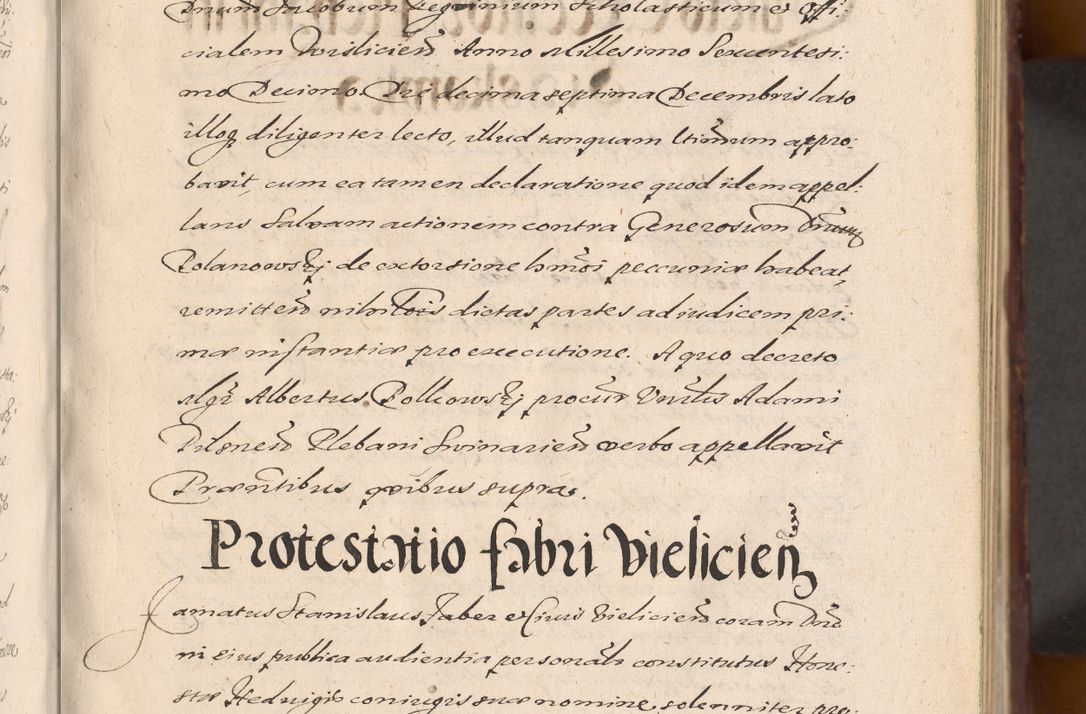 Dnum Jacobum Scholasticum et Offi:
cialem Visliciens Anno Millesimo Sexcentesi:
mo Decimo Die decima septima Decembris lato
illoq diligenter lecto, illud tanquam ltimum appro:
bavit, cum ea tamen declaratione quod idem appel:
lans Salvam actionem contra Generosum Dnum
Polanowskj de extorsione hmoi peccuniæ habeat,
remittens dictas partes ad iudicem pri:
mæ instantiæ pro executione. A quo decreto
Mgr Albertus Polkowskj procur Vnrlis Adami
Pilsnens Plebani Swinariens verbo appellavit
Præntibus quibus supra.
Protestatio fabri Vieliciens
Famatus Stanislaus Faber et Civis Vieliciens coram Dnõ
in eius publica audientia personalr constitutus Hone:
stæ Hedvigis coniugis suæ nomine solenniter pro: